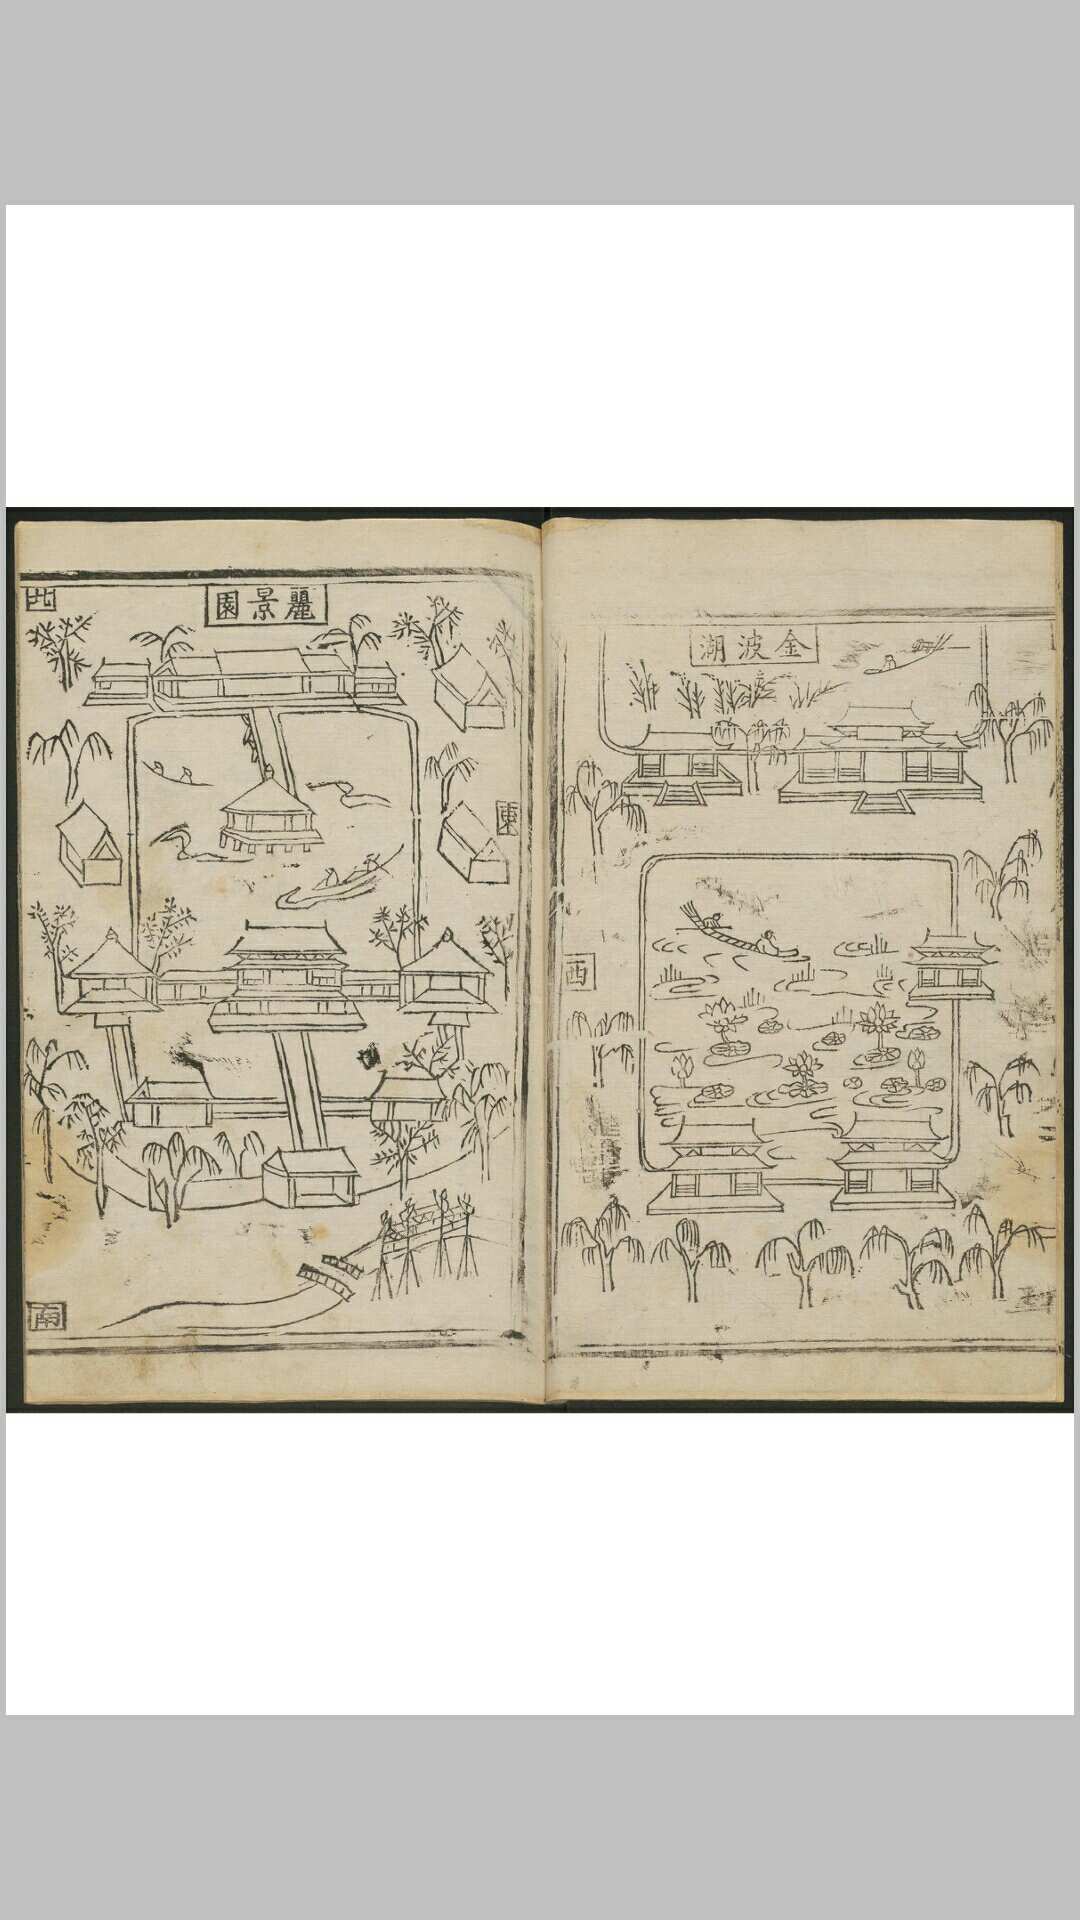 金波湖
西
麗景園
北
東
南